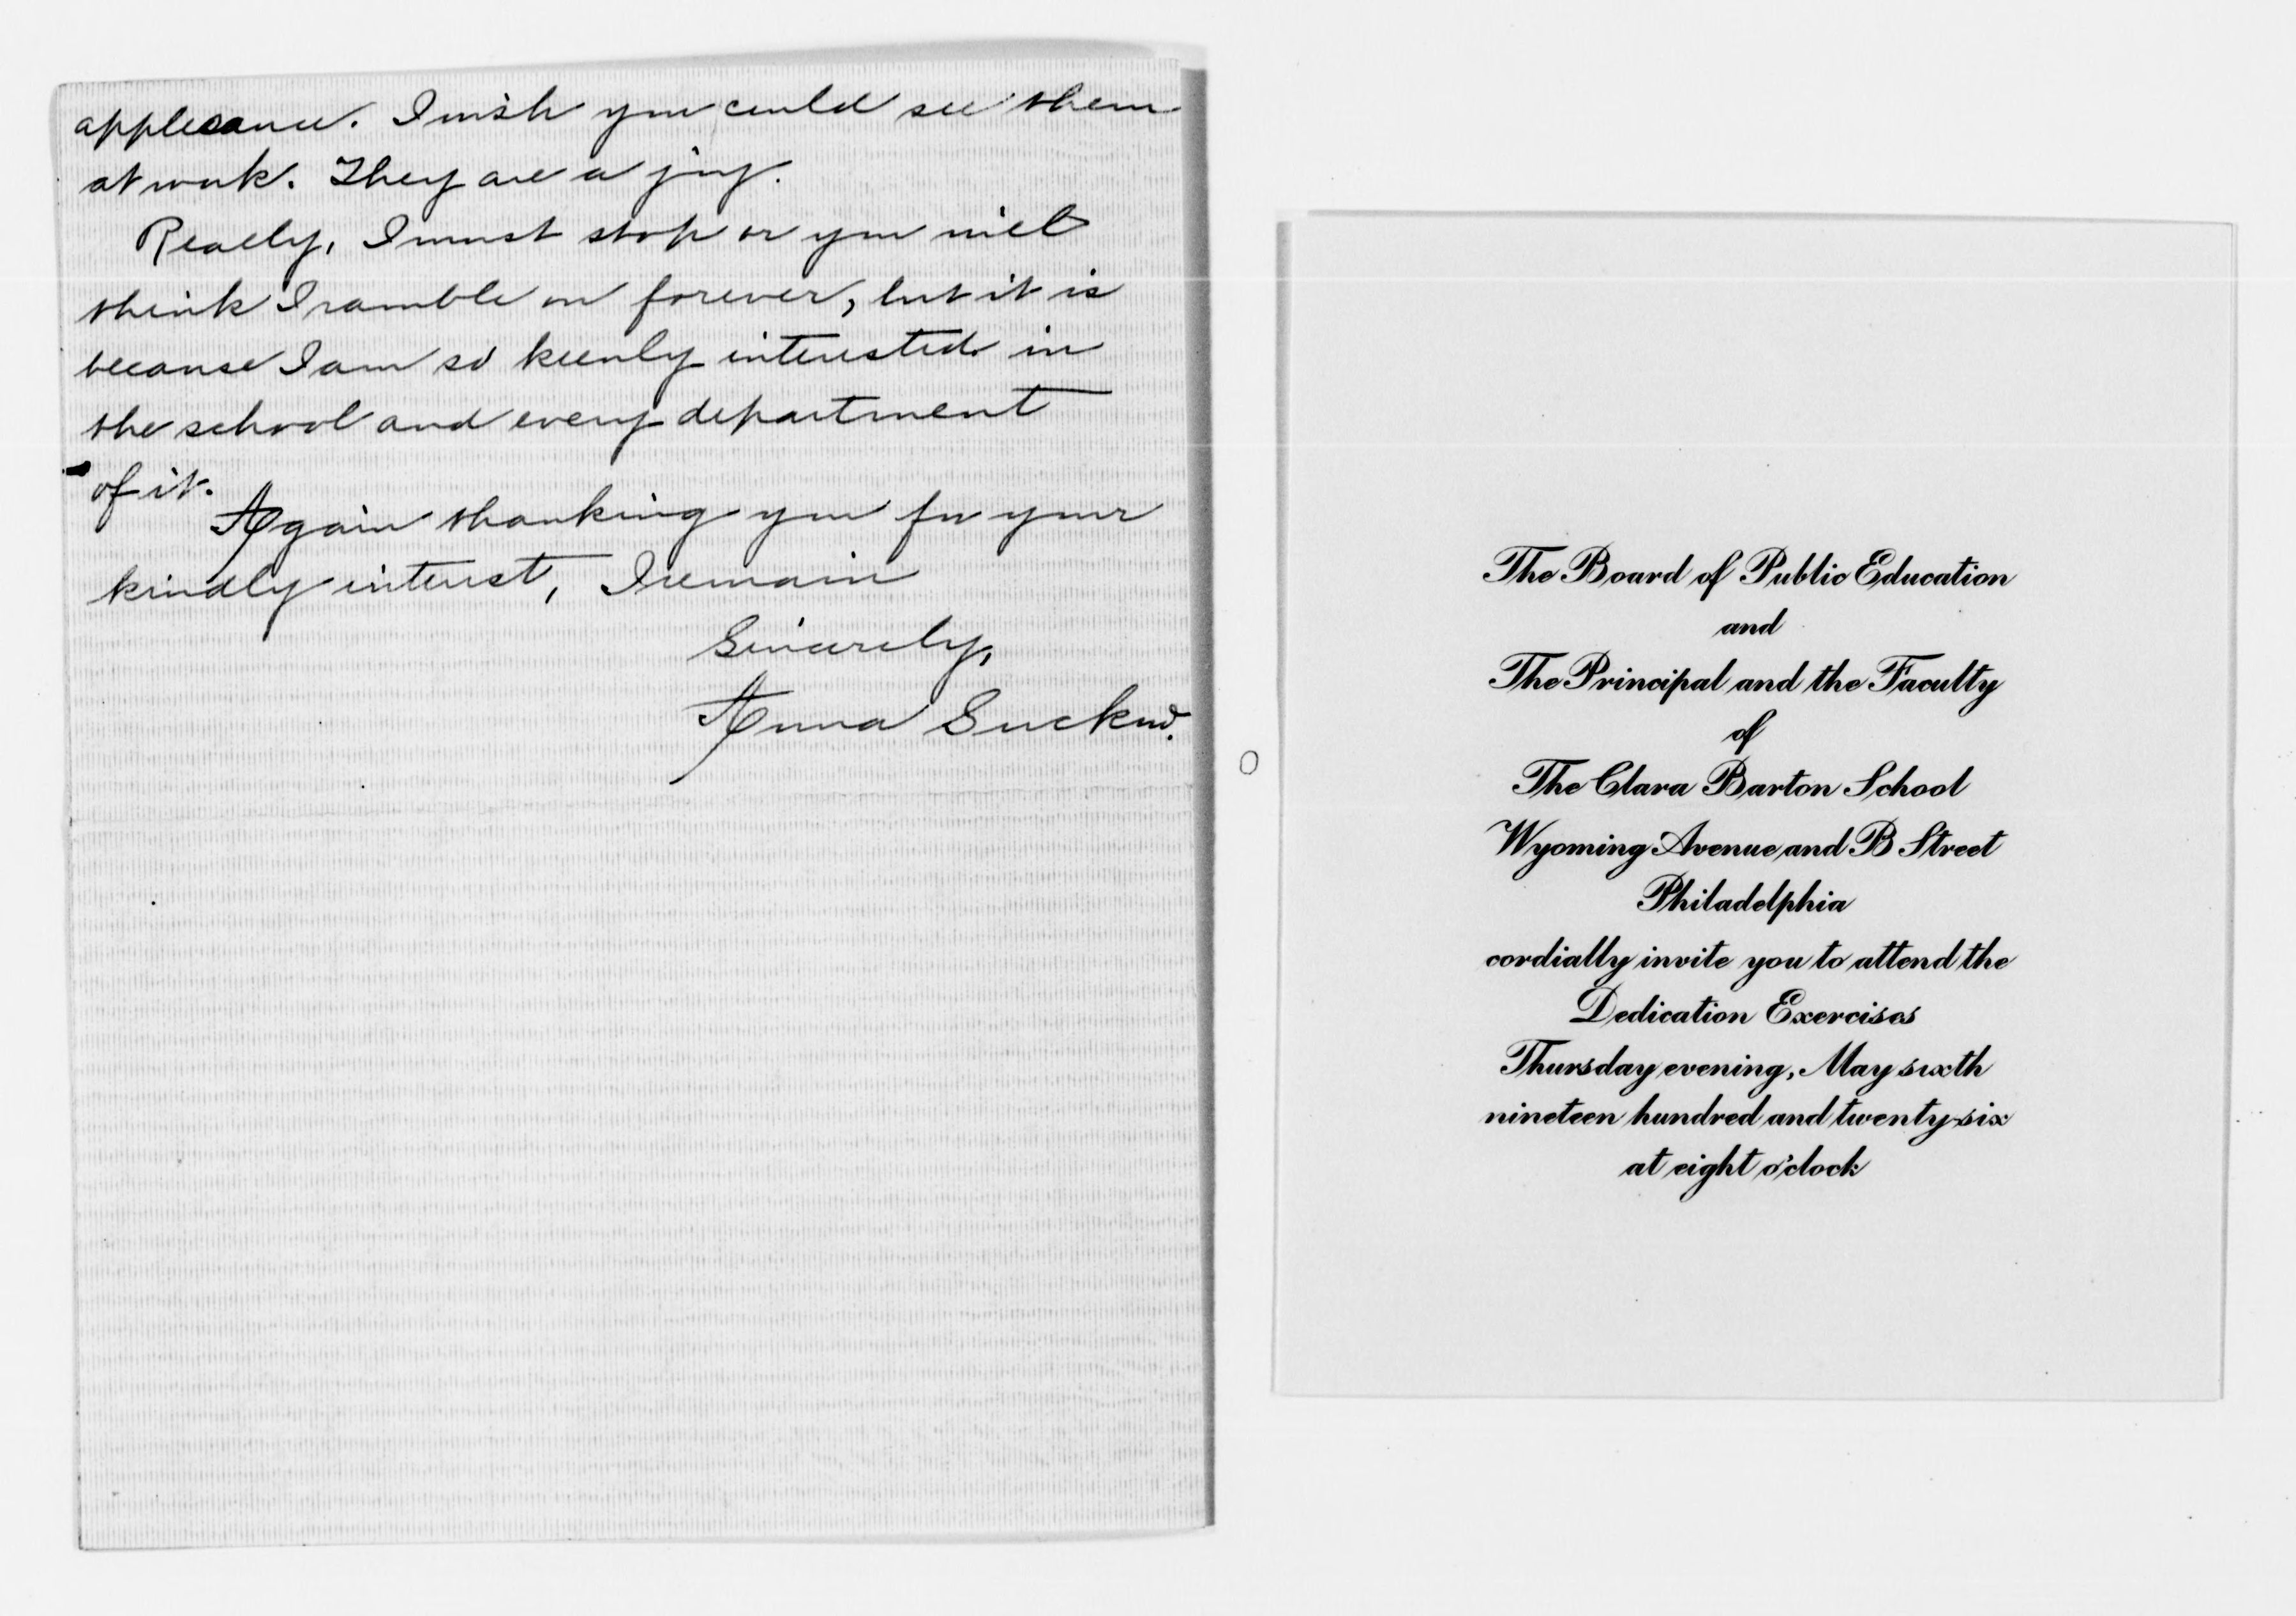 applicance. I wish you could see them
at work. They are a joy.
Really, I must stop or you will
think I ramble on forever, but it is
because I am so keenly interested in
the school and every department
of it.
Again thanking you for your
kindly interest, I remain
Sincerely,
Anna Suckow.
The Board of Public Education
and
The Principal and the Faculty
of
The Clara Barton School
Wyoming Avenue and B Street
Philadelphia
cordially invite you to attend the
Dedication Exercises
Thursday evening, May sixth
nineteen hundred and twenty-six
at eight o'clock